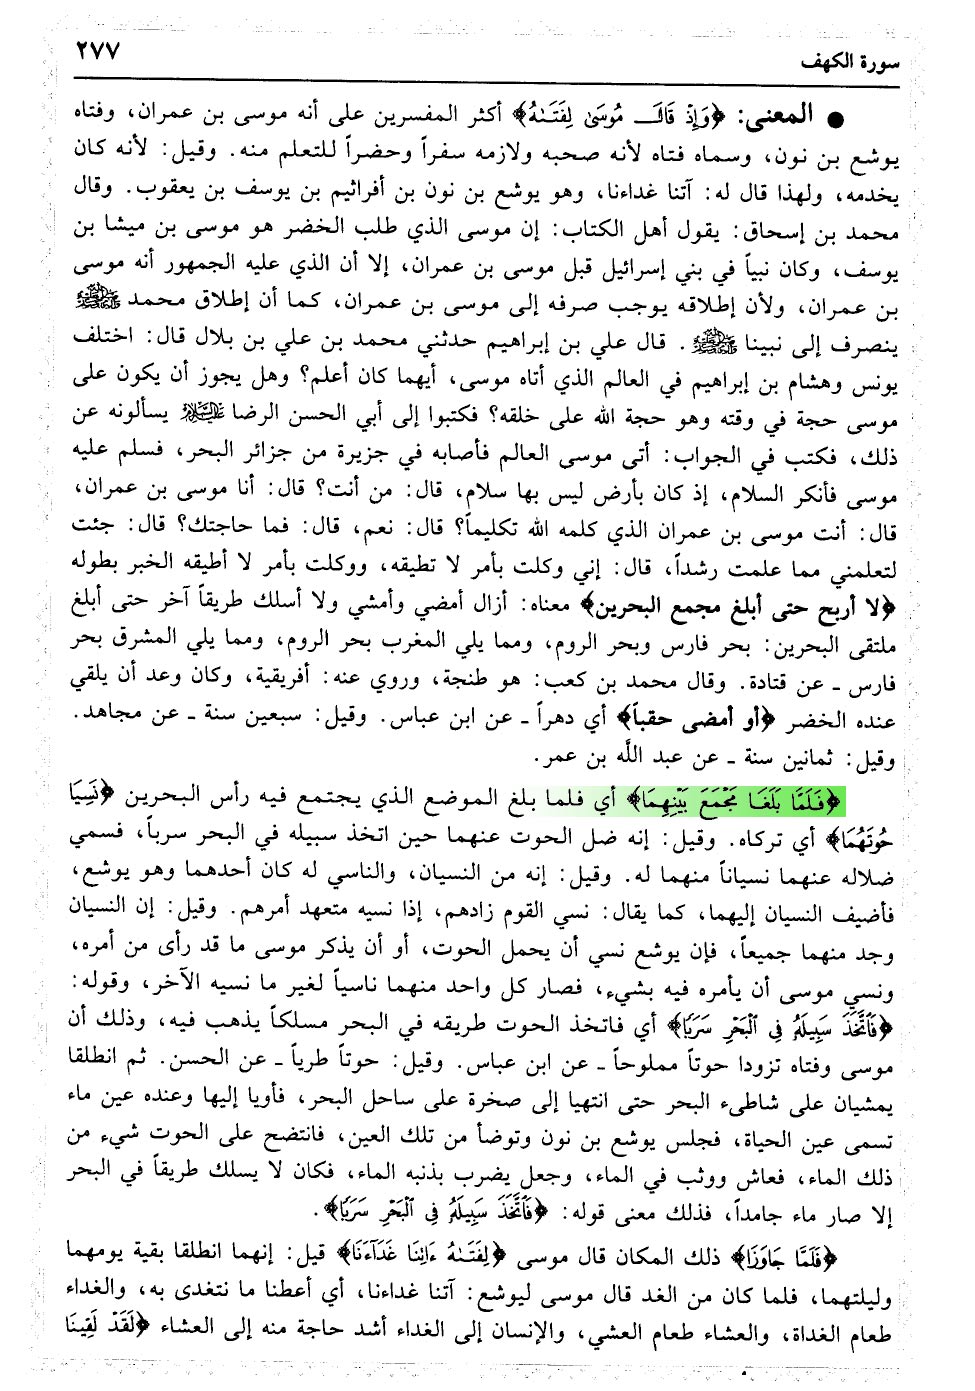 سورة الكهف ٢٧٧
● المعنى: ﴿وَإِذْ قَالَ مُوسَىٰ لِفَتَىٰهُ﴾ أكثر المفسرين على أنه موسى بن عمران، وفتاه
يوشع بن نون، وسماه فتاه لأنه صحبه ولازمه سفراً وحضراً للتعلم منه. وقيل: لأنه كان
يخدمه، ولهذا قال له: آتنا غداءنا، وهو يوشع بن نون بن أفراثيم بن يوسف بن يعقوب. وقال
محمد بن إسحاق: يقول أهل الكتاب: إن موسى الذي طلب الخضر هو موسى بن ميشا بن
يوسف، وكان نبياً في بني إسرائيل قبل موسى بن عمران، إلا أن الذي عليه الجمهور أنه موسى
بن عمران، ولأن إطلاقه يوجب صرفه إلى موسى بن عمران، كما أن إطلاق محمد ﷺ
ينصرف إلى نبينا ﷺ. قال علي بن إبراهيم حدثني محمد بن علي بن بلال قال: اختلف
يونس وهشام بن إبراهيم في العالم الذي أتاه موسى، أيهما كان أعلم؟ وهل يجوز أن يكون على
موسى حجة في وقته وهو حجة الله على خلقه؟ فكتبوا إلى أبي الحسن الرضا عليه السلام يسألونه عن
ذلك، فكتب في الجواب: أتى موسى العالم فأصابه في جزيرة من جزائر البحر، فسلم عليه
موسى فأنكر السلام، إذ كان بأرض ليس بها سلام، قال: من أنت؟ قال: أنا موسى بن عمران،
قال: أنت موسى بن عمران الذي كلمه الله تكليماً؟ قال: نعم، قال: فما حاجتك؟ قال: جئت
لتعلمني مما علمت رشداً، قال: إني وكلت بأمر لا تطيقه، ووكلت بأمر لا أطيقه الخبر بطوله
﴿لا أربح حتى أبلغ مجمع البحرين﴾ معناه: أزال أمضي وأمشي ولا أسلك طريقاً آخر حتى أبلغ
ملتقى البحرين: بحر فارس وبحر الروم، ومما يلي المغرب بحر الروم، ومما يلي المشرق بحر
فارس ـ عن قتادة. وقال محمد بن كعب: هو طنجة، وروي عنه: أفريقية، وكان وعد أن يلقي
عنده الخضر ﴿أو أمضى حقباً﴾ أي دهراً ـ عن ابن عباس. وقيل: سبعين سنة ـ عن مجاهد.
وقيل: ثمانين سنة ـ عن عبد اللَّه بن عمر.
﴿فَلَمَّا بَلَغَا مَجْمَعَ بَيْنِهِمَا﴾ أي فلما بلغ الموضع الذي يجتمع فيه رأس البحرين ﴿نَسِيَا
حُوتَهُمَا﴾ أي تركاه. وقيل: إنه ضل الحوت عنهما حين اتخذ سبيله في البحر سرباً، فسمي
ضلاله عنهما نسياناً منهما له. وقيل: إنه من النسيان، والناسي له كان أحدهما وهو يوشع،
فأضيف النسيان إليهما، كما يقال: نسي القوم زادهم، إذا نسيه متعهد أمرهم. وقيل: إن النسيان
وجد منهما جميعاً، فإن يوشع نسي أن يحمل الحوت، أو أن يذكر موسى ما قد رأى من أمره،
ونسي موسى أن يأمره فيه بشيء، فصار كل واحد منهما ناسياً لغير ما نسيه الآخر، وقوله:
﴿فَٱتَّخَذَ سَبِيلَهُۥ فِى ٱلْبَحْرِ سَرَبًا﴾ أي فاتخذ الحوت طريقه في البحر مسلكاً يذهب فيه، وذلك أن
موسى وفتاه تزودا حوتاً مملوحاً ـ عن ابن عباس. وقيل: حوتاً طرياً ـ عن الحسن. ثم انطلقا
يمشيان على شاطىء البحر حتى انتهيا إلى صخرة على ساحل البحر، فأويا إليها وعنده عين ماء
تسمى عين الحياة، فجلس يوشع بن نون وتوضأ من تلك العين، فانتضح على الحوت شيء من
ذلك الماء، فعاش ووثب في الماء، وجعل يضرب بذنبه الماء، فكان لا يسلك طريقاً في البحر
إلا صار ماء جامداً، فذلك معنى قوله: ﴿فَٱتَّخَذَ سَبِيلَهُۥ فِى ٱلْبَحْرِ سَرَبًا﴾.
﴿فَلَمَّا جَاوَزَا﴾ ذلك المكان قال موسى ﴿لِفَتَىٰهُ ءَاتِنَا غَدَآءَنَا﴾ قيل: إنهما انطلقا بقية يومهما
وليلتهما، فلما كان من الغد قال موسى ليوشع: آتنا غداءنا، أي أعطنا ما نتغدى به، والغداء
طعام الغداة، والعشاء طعام العشي، والإنسان إلى الغداء أشد حاجة منه إلى العشاء ﴿لَقَدْ لَقِينَا